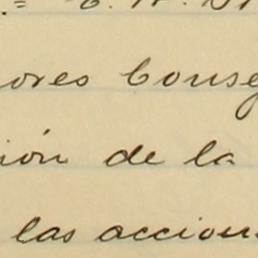 ores Conse
ión de la
las accion